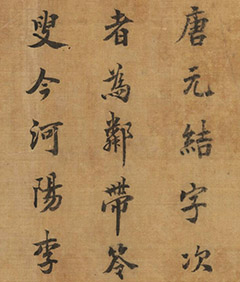 唐元結字次
者為鄰帶笭
叟今河陽李